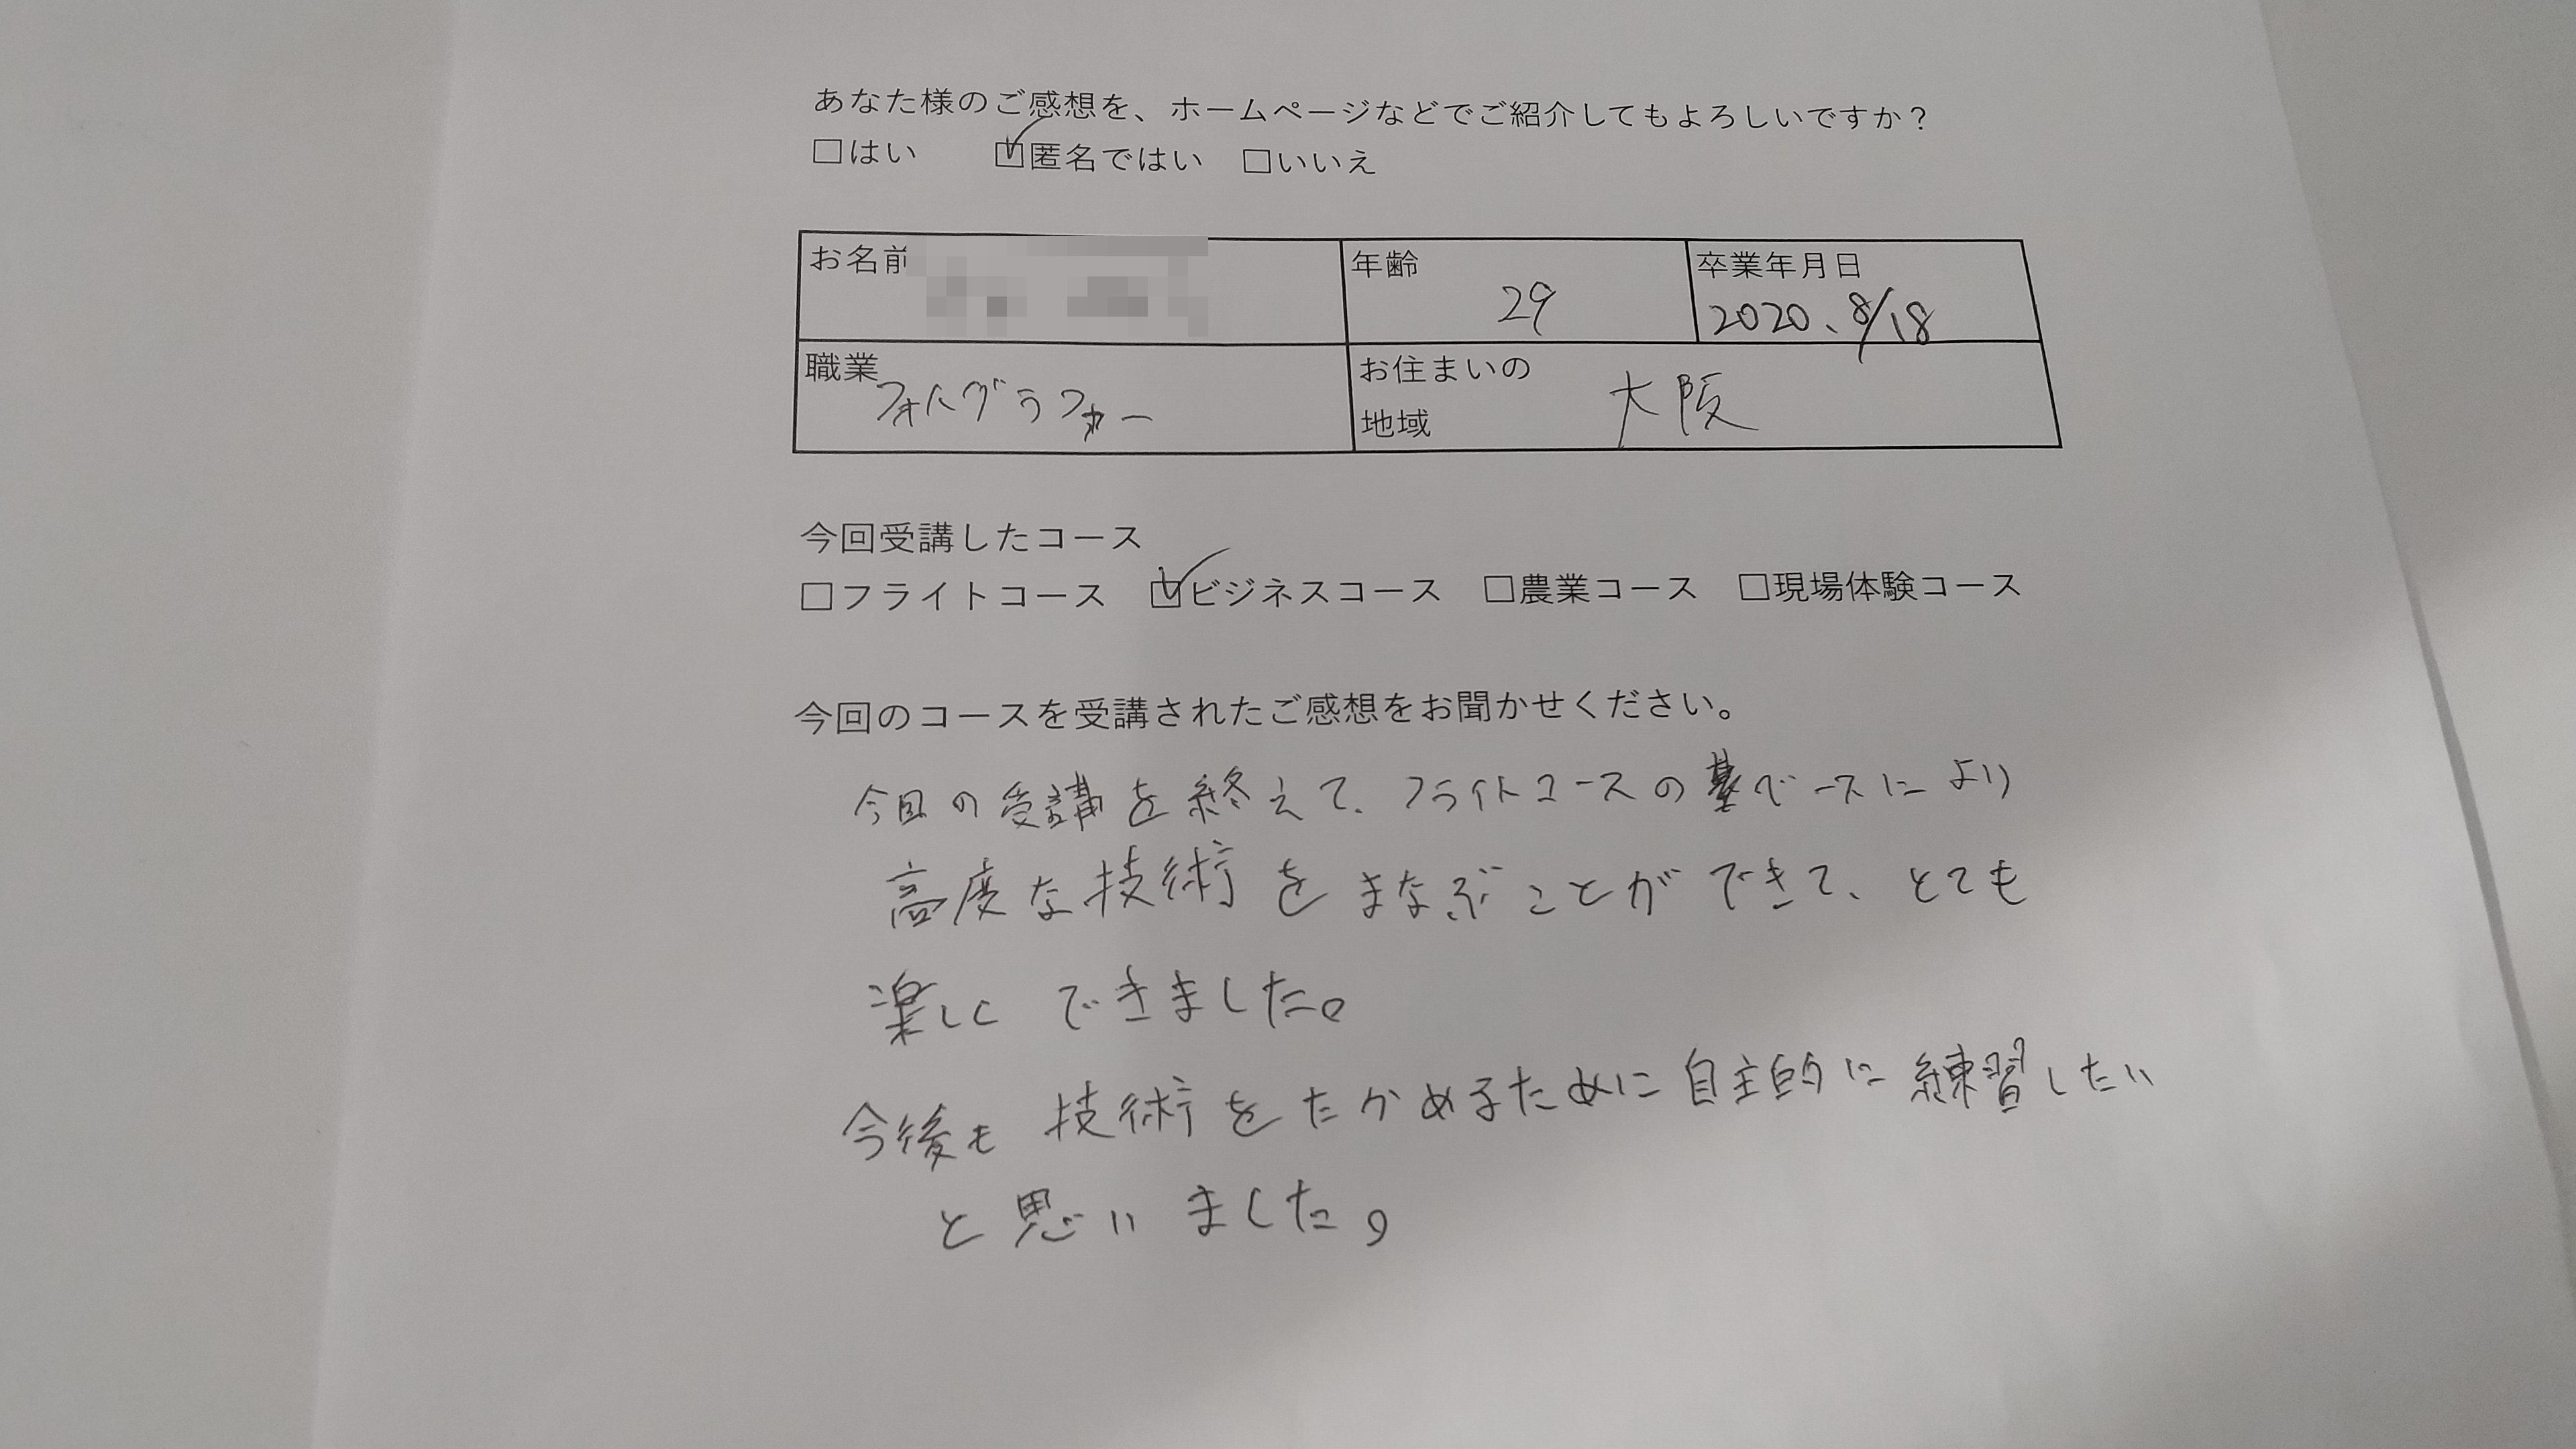 あなた様のご感想を、ホームページなどでご紹介してもよろしいですか？
□はい ☑匿名ではい □いいえ
お名前 年齢 29 卒業年月日 2020.8/18
職業 フォトグラファー お住まいの地域 大阪
今回受講したコース
□フライトコース ☑ビジネスコース □農業コース □現場体験コース
今回のコースを受講されたご感想をお聞かせください。
今回の受講を終えて、フライトコースのベースにより
高度な技術をまなぶことができて、とても
楽しくできました。
今後も技術をたかめるために自主的に練習したい
と思いました。